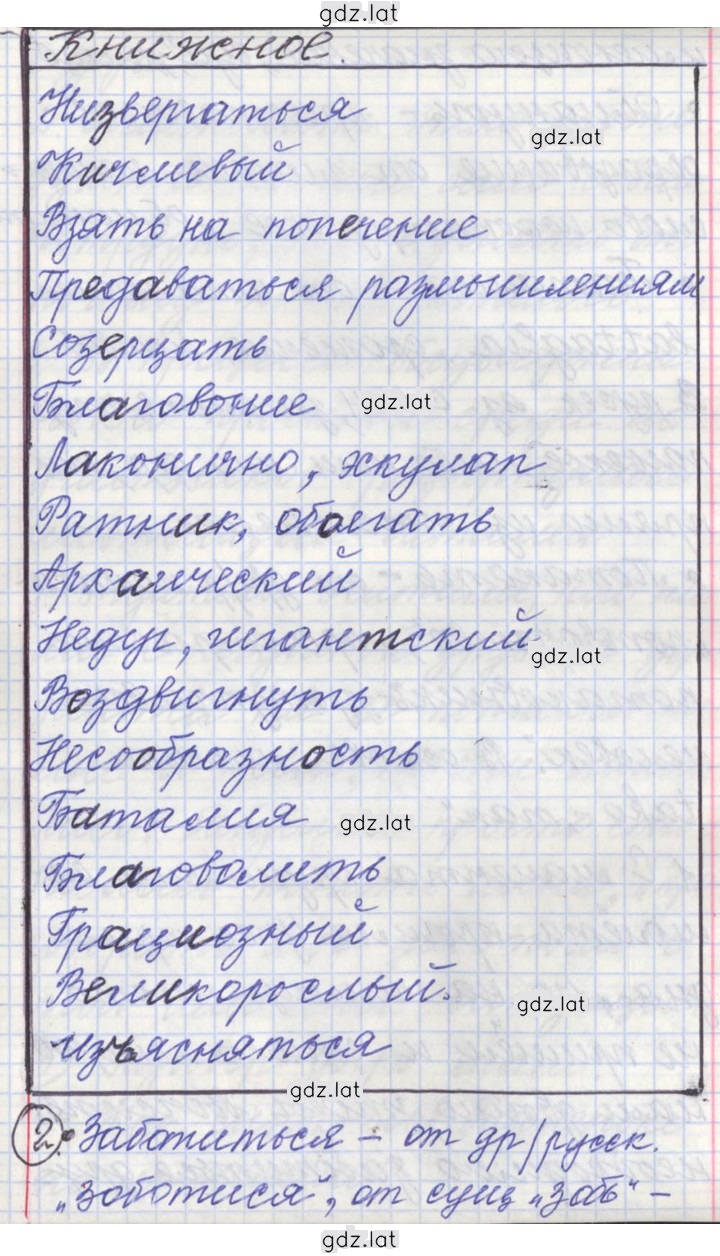 gdz.lat
Книжное.
Низвергаться
gdz.lat
Кичливый
Взять на попечение
Предаваться размышлениям
Созерцать
Благовоние gdz.lat
Лаконично, эскулап
Ратник, облегать
Архаический
Недуг, гигантский
gdz.lat
Воздвигнуть
Несообразность
Баталия gdz.lat
Благоволить
Грациозный
Великорослый.
gdz.lat
изъясняться
gdz.lat
2. Заботиться – от др/русск.
„зоботися", от сущ „зобь" –
gdz.lat